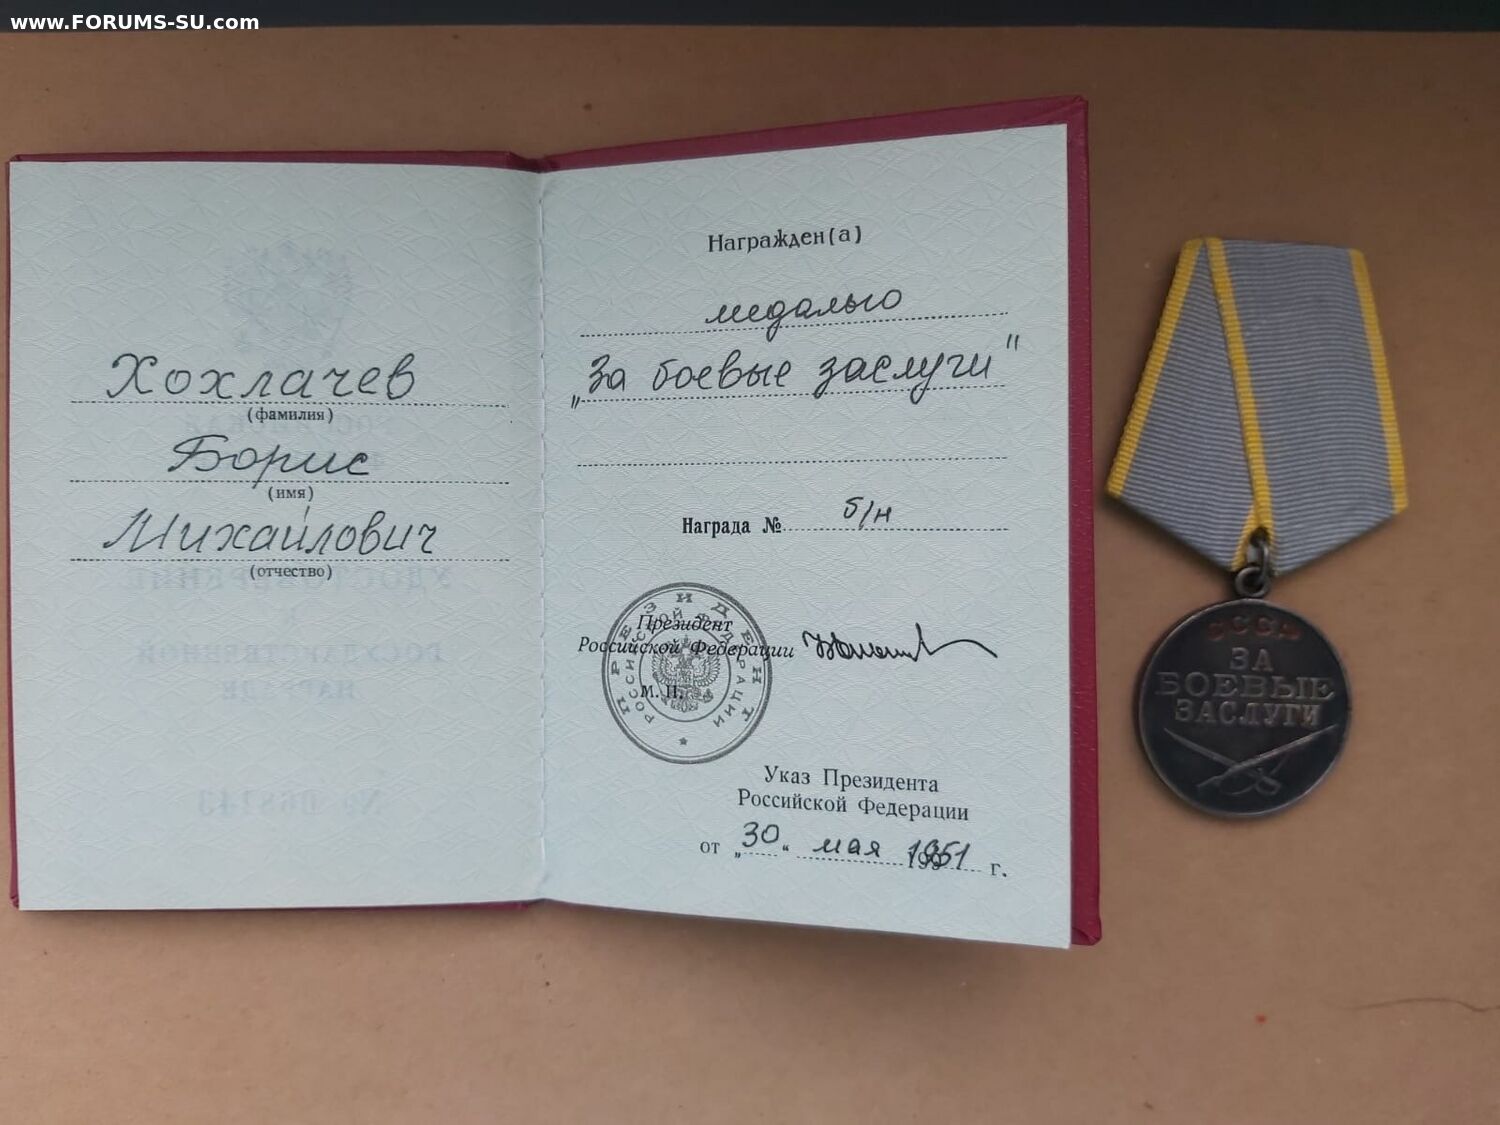 www.FORUMS-SU.com
Хохлачев
(фамилия)
Борис
(имя)
Михайлович
(отчество)
Награжден(а)
медалью
„За боевые заслуги"
Награда № б/н
Президент
Российской Федерации
М. П.
ПРЕЗИДЕНТ
РОССИЙСКОЙ ФЕДЕРАЦИИ
Указ Президента
Российской Федерации
от „30“ мая 1951 г.
СССР
ЗА
БОЕВЫЕ
ЗАСЛУГИ